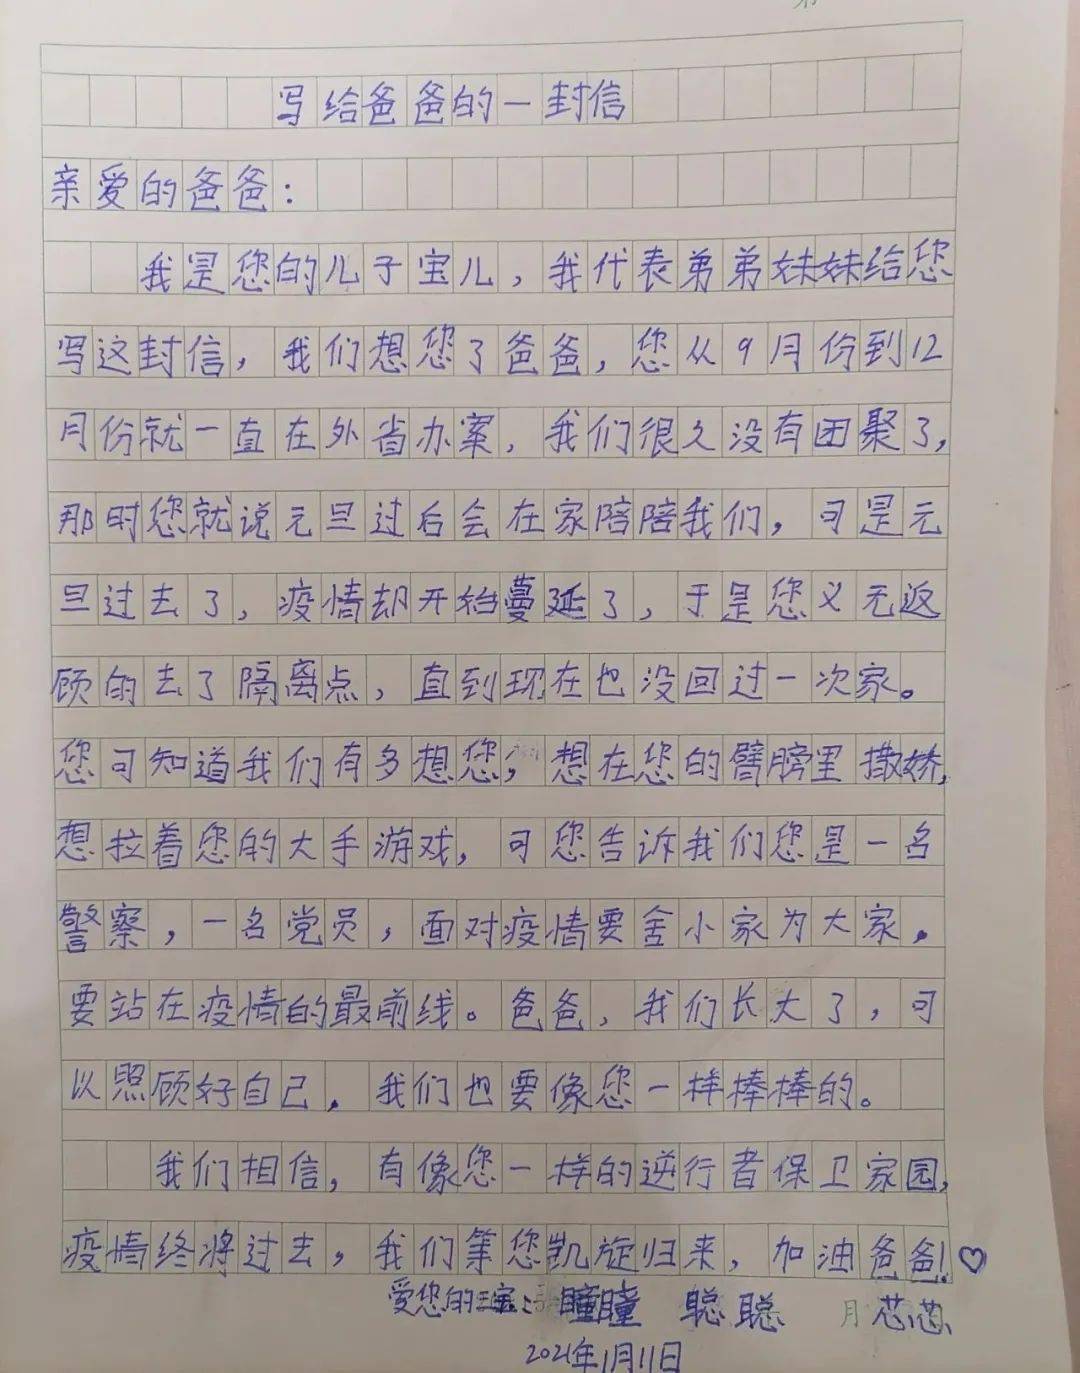 写给爸爸的一封信
亲爱的爸爸：
我是您的儿子宝儿，我代表弟弟妹妹给您
写这封信，我们想您了爸爸，您从9月份到12
月份就一直在外省办案，我们很久没有团聚了，
那时您就说元旦过后会在家陪陪我们，可是元
旦过去了，疫情却开始蔓延了，于是您义无返
顾的去了隔离点，直到现在也没回过一次家。
您可知道我们有多想您，想在您的臂膀里撒娇，
想拉着您的大手游戏，可您告诉我们您是一名
警察，一名党员，面对疫情要舍小家为大家。
要站在疫情的最前线。爸爸，我们长大了，可
以照顾好自己。我们也要像您一样棒棒的。
我们相信，有像您一样的逆行者保卫家园，
疫情终将过去，我们等您凯旋归来，加油爸爸！♡
爱您的三宝：瞳瞳 聪聪 月 芯芯
2021年1月11日